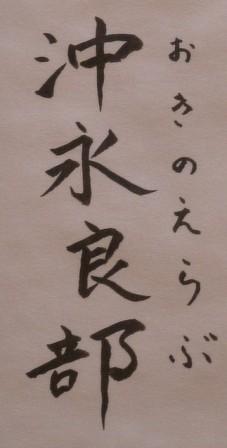 おきのえらぶ
沖永良部